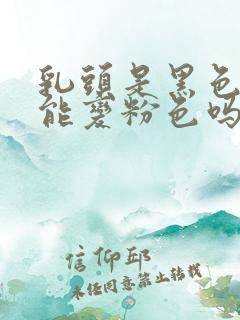 乳頭是黑色
能變粉色嗎
信仰邱
未经同意禁止转载